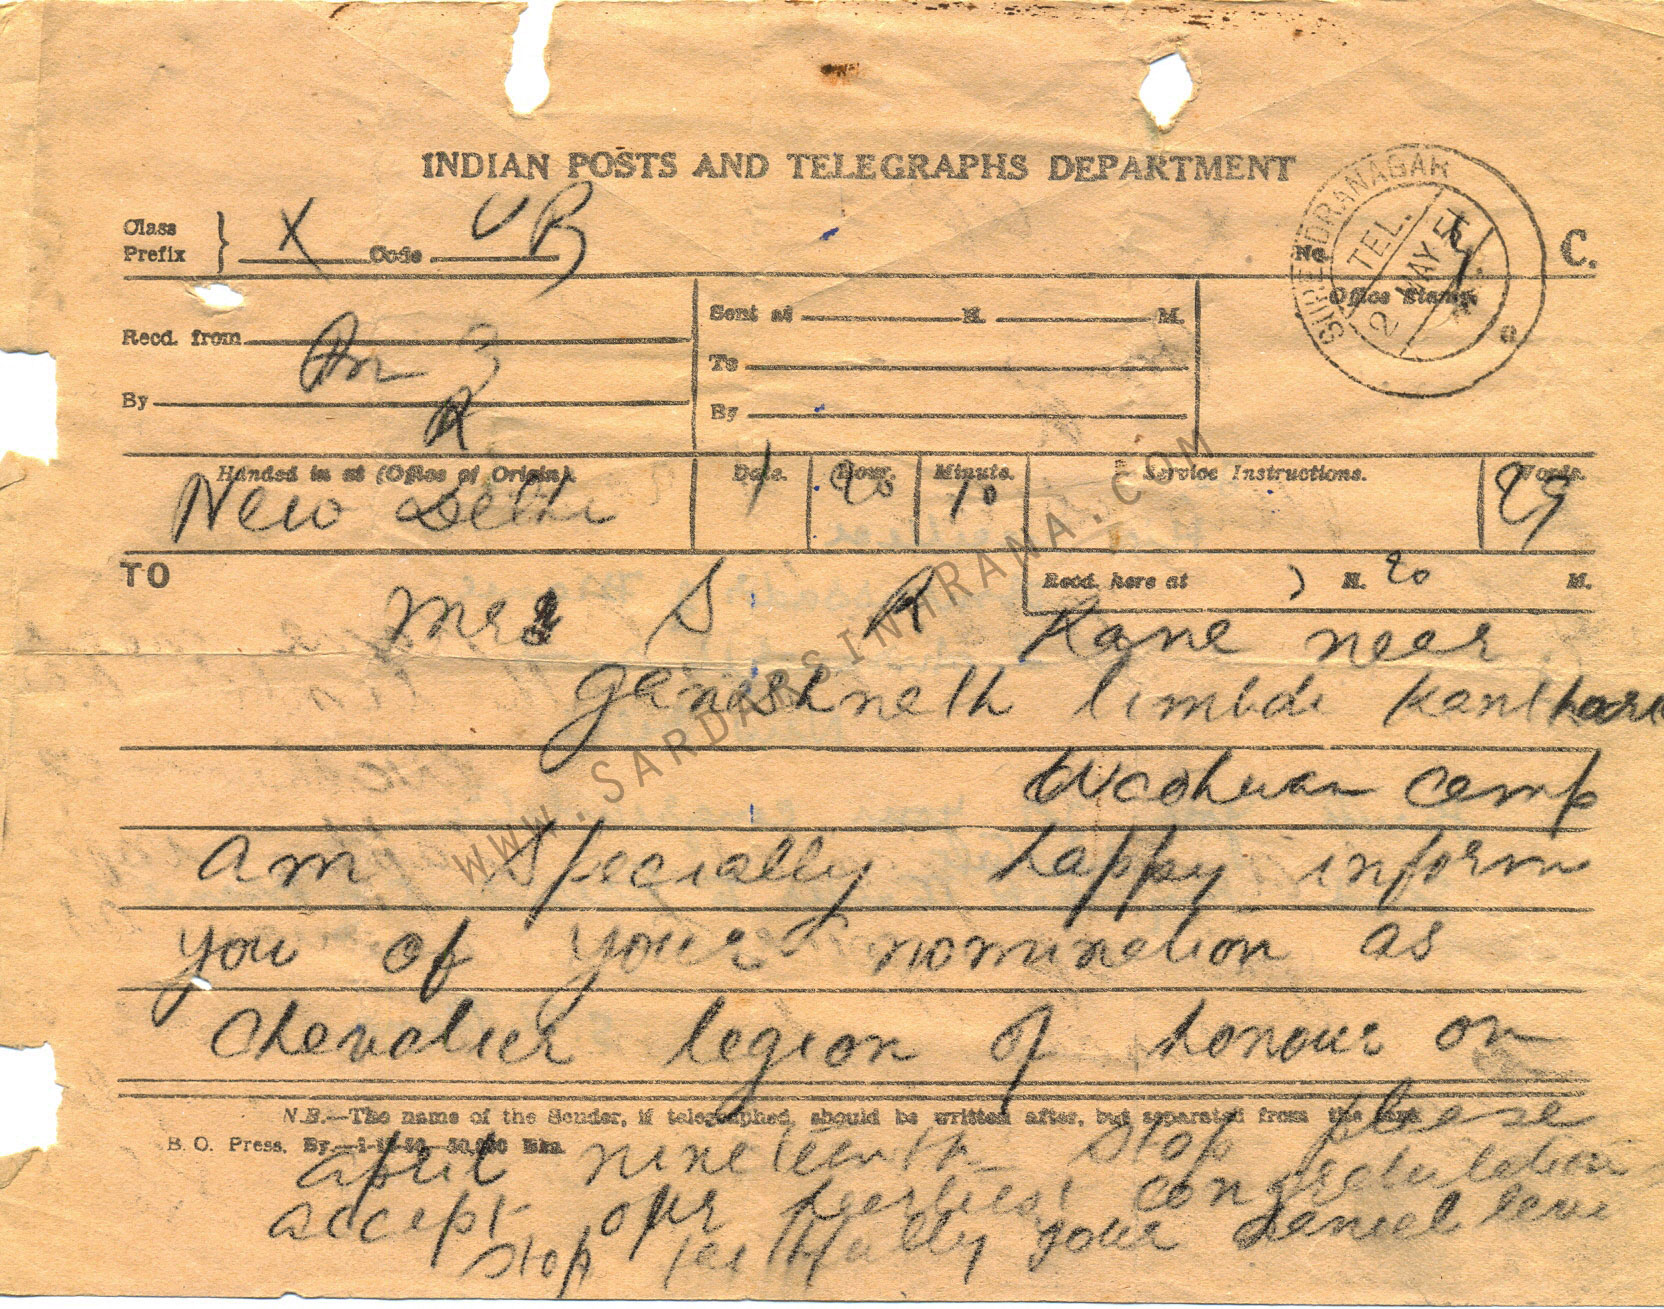 INDIAN POSTS AND TELEGRAPHS DEPARTMENT
Class Prefix } X Code
No.
C.
SURENDRANAGAR
TEL.
2 MAY
Office Stamp.
Recd. from
By
Sent at H. M.
To
By
Handed in at (Office of Origin). Date. Hour. Minute. Service Instructions. Words.
New Delhi 1 20 10 29
TO
Recd. here at H. 20 M.
Mrs S R Kane near
ganeshnath limbdi
Wadhwan Camp
am specially happy inform
you of your nomination as
chevalier legion of honour on
N.B.—The name of the Sender, if telegraphed, should be written after, but separated from the
B. O. Press, By.
april nineteenth stop please
accept our heartiest congratulation
stop faithfully your daniel levi
WWW.SARDARSINHRANA.COM